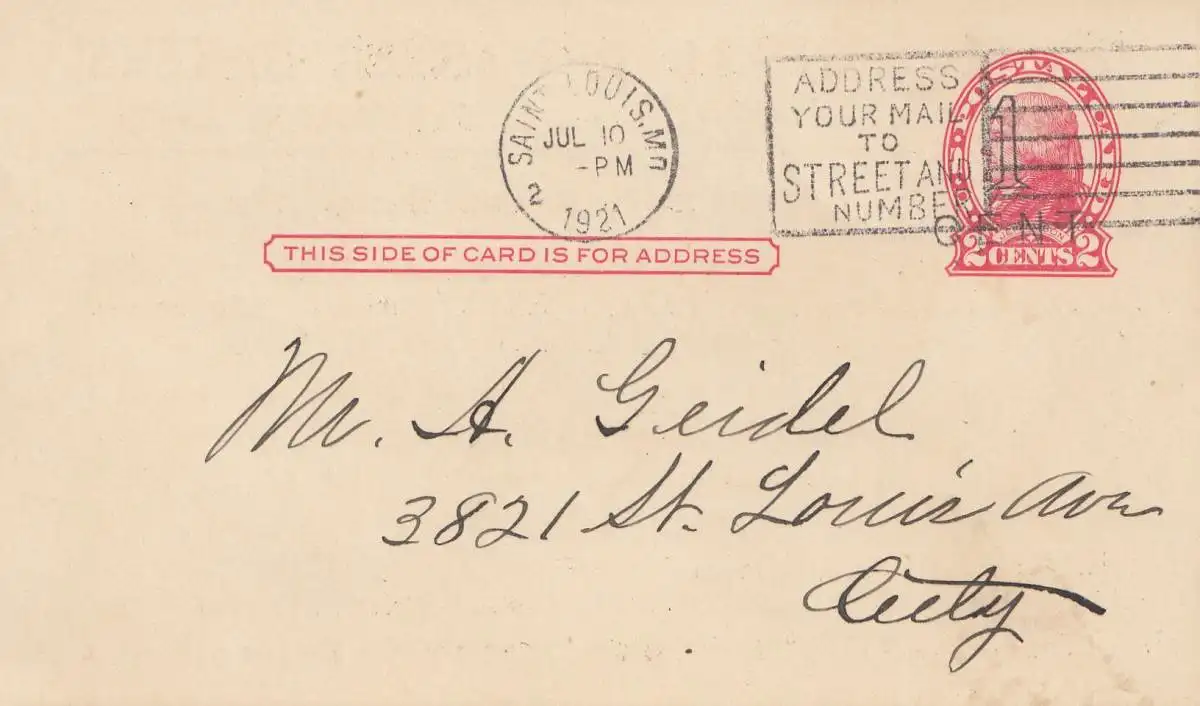 SAINT LOUIS, MO
JUL 10
-PM
2
1921
ADDRESS
YOUR MAIL
TO
STREET AND
NUMBER
U·S·POSTAL CARD
1
CENT
2 CENTS 2
THIS SIDE OF CARD IS FOR ADDRESS
Mr. A. Geidel
3821 St. Louis Ave
City